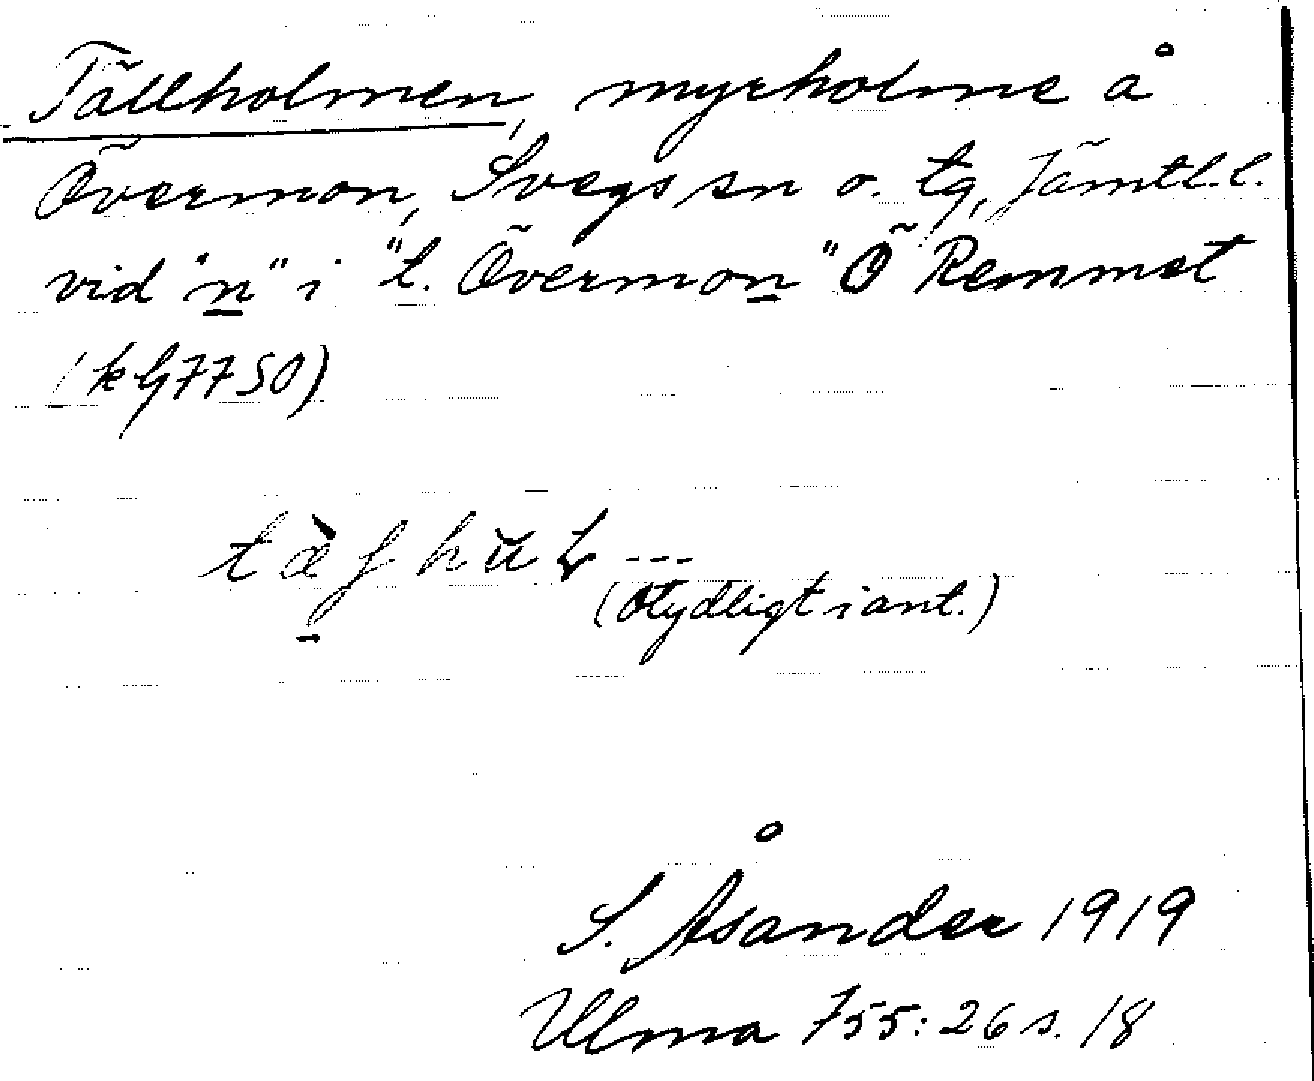 Tällholmen, myrholme å
Övermon, Svegs sn o. tg, Jämtl.l.
vid "n" i "l. Övermon" Ö Remmet
(kg7750)
(Otydligt i ant.)
S. Åsander 1919
Ulma 755:26 s. 18